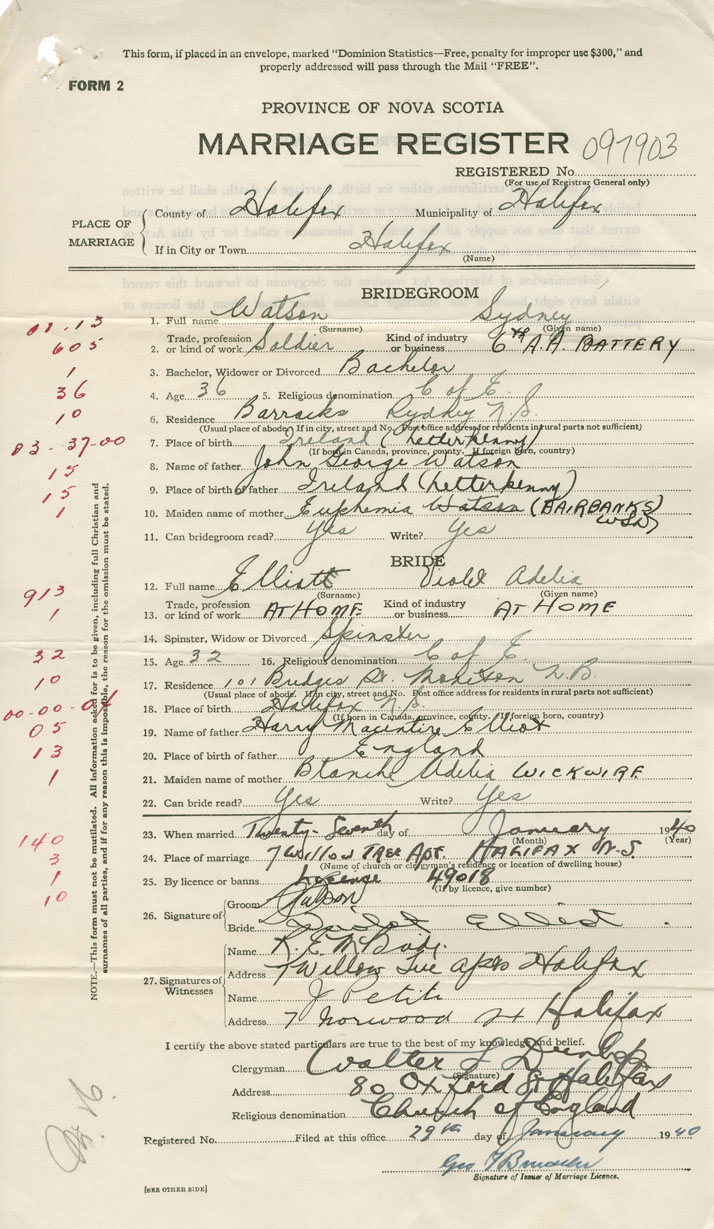 This form, if placed in an envelope, marked "Dominion Statistics—Free, penalty for improper use $300," and
properly addressed will pass through the Mail "FREE".
FORM 2
PROVINCE OF NOVA SCOTIA
MARRIAGE REGISTER 097903
REGISTERED No.
(For use of Registrar General only)
PLACE OF MARRIAGE
County of Halifax Municipality of Halifax
If in City or Town Halifax
(Name)
BRIDEGROOM
1. Full name Watson Sydney
(Surname) (Given name)
2. Trade, profession or kind of work Soldier Kind of industry or business 6th A.A. BATTERY
3. Bachelor, Widower or Divorced Bachelor
4. Age 36 5. Religious denomination C of E.
6. Residence Barracks Sydney N.S.
(Usual place of abode. If in city, street and No. Post office address for residents in rural parts not sufficient)
7. Place of birth Ireland (Letterkenny)
(If born in Canada, province, county. If foreign born, country)
8. Name of father John George Watson
9. Place of birth of father Ireland (Letterkenny)
10. Maiden name of mother Euphemia Watson (BAIRBANKS)
11. Can bridegroom read? Yes Write? Yes
BRIDE
12. Full name Elliott Violet Adelia
(Surname) (Given name)
13. Trade, profession or kind of work AT HOME Kind of industry or business AT HOME
14. Spinster, Widow or Divorced Spinster
15. Age 32 16. Religious denomination C of E.
17. Residence 101 Bridges St. Moncton N.B.
(Usual place of abode. If in city, street and No. Post office address for residents in rural parts not sufficient)
18. Place of birth Halifax N.S.
(If born in Canada, province, county. If foreign born, country)
19. Name of father Harry Elliot
20. Place of birth of father England
21. Maiden name of mother Blanche Adelia WICKWIRE
22. Can bride read? Yes Write? Yes
23. When married Twenty-Seventh day of January 1940
(Month) (Year)
24. Place of marriage 7 Willow Tree Apt. HALIFAX N.S.
(Name of church or clergyman's residence or location of dwelling house)
25. By licence or banns License 49018
(If by licence, give number)
26. Signature of
Groom Watson
Bride Violet Elliot
27. Signatures of Witnesses
Name
Address 7 Willow Tree Apts Halifax
Name J Petite
Address 7 Norwood St Halifax
I certify the above stated particulars are true to the best of my knowledge and belief.
Clergyman Walter J Dunlop
(Signature)
Address 80 Oxford St Halifax
Religious denomination Church of England
Registered No. Filed at this office 29th day of January 1940
Geo
Signature of Issuer of Marriage Licence.
[SEE OTHER SIDE]
NOTE.—This form must not be mutilated. All information asked for is to be given, including full Christian and
surnames of all parties, and if for any reason this is impossible, the reason for the omission must be stated.
605
1
36
10
03-37-00
15
15
1
913
1
32
10
05
13
1
140
3
1
10